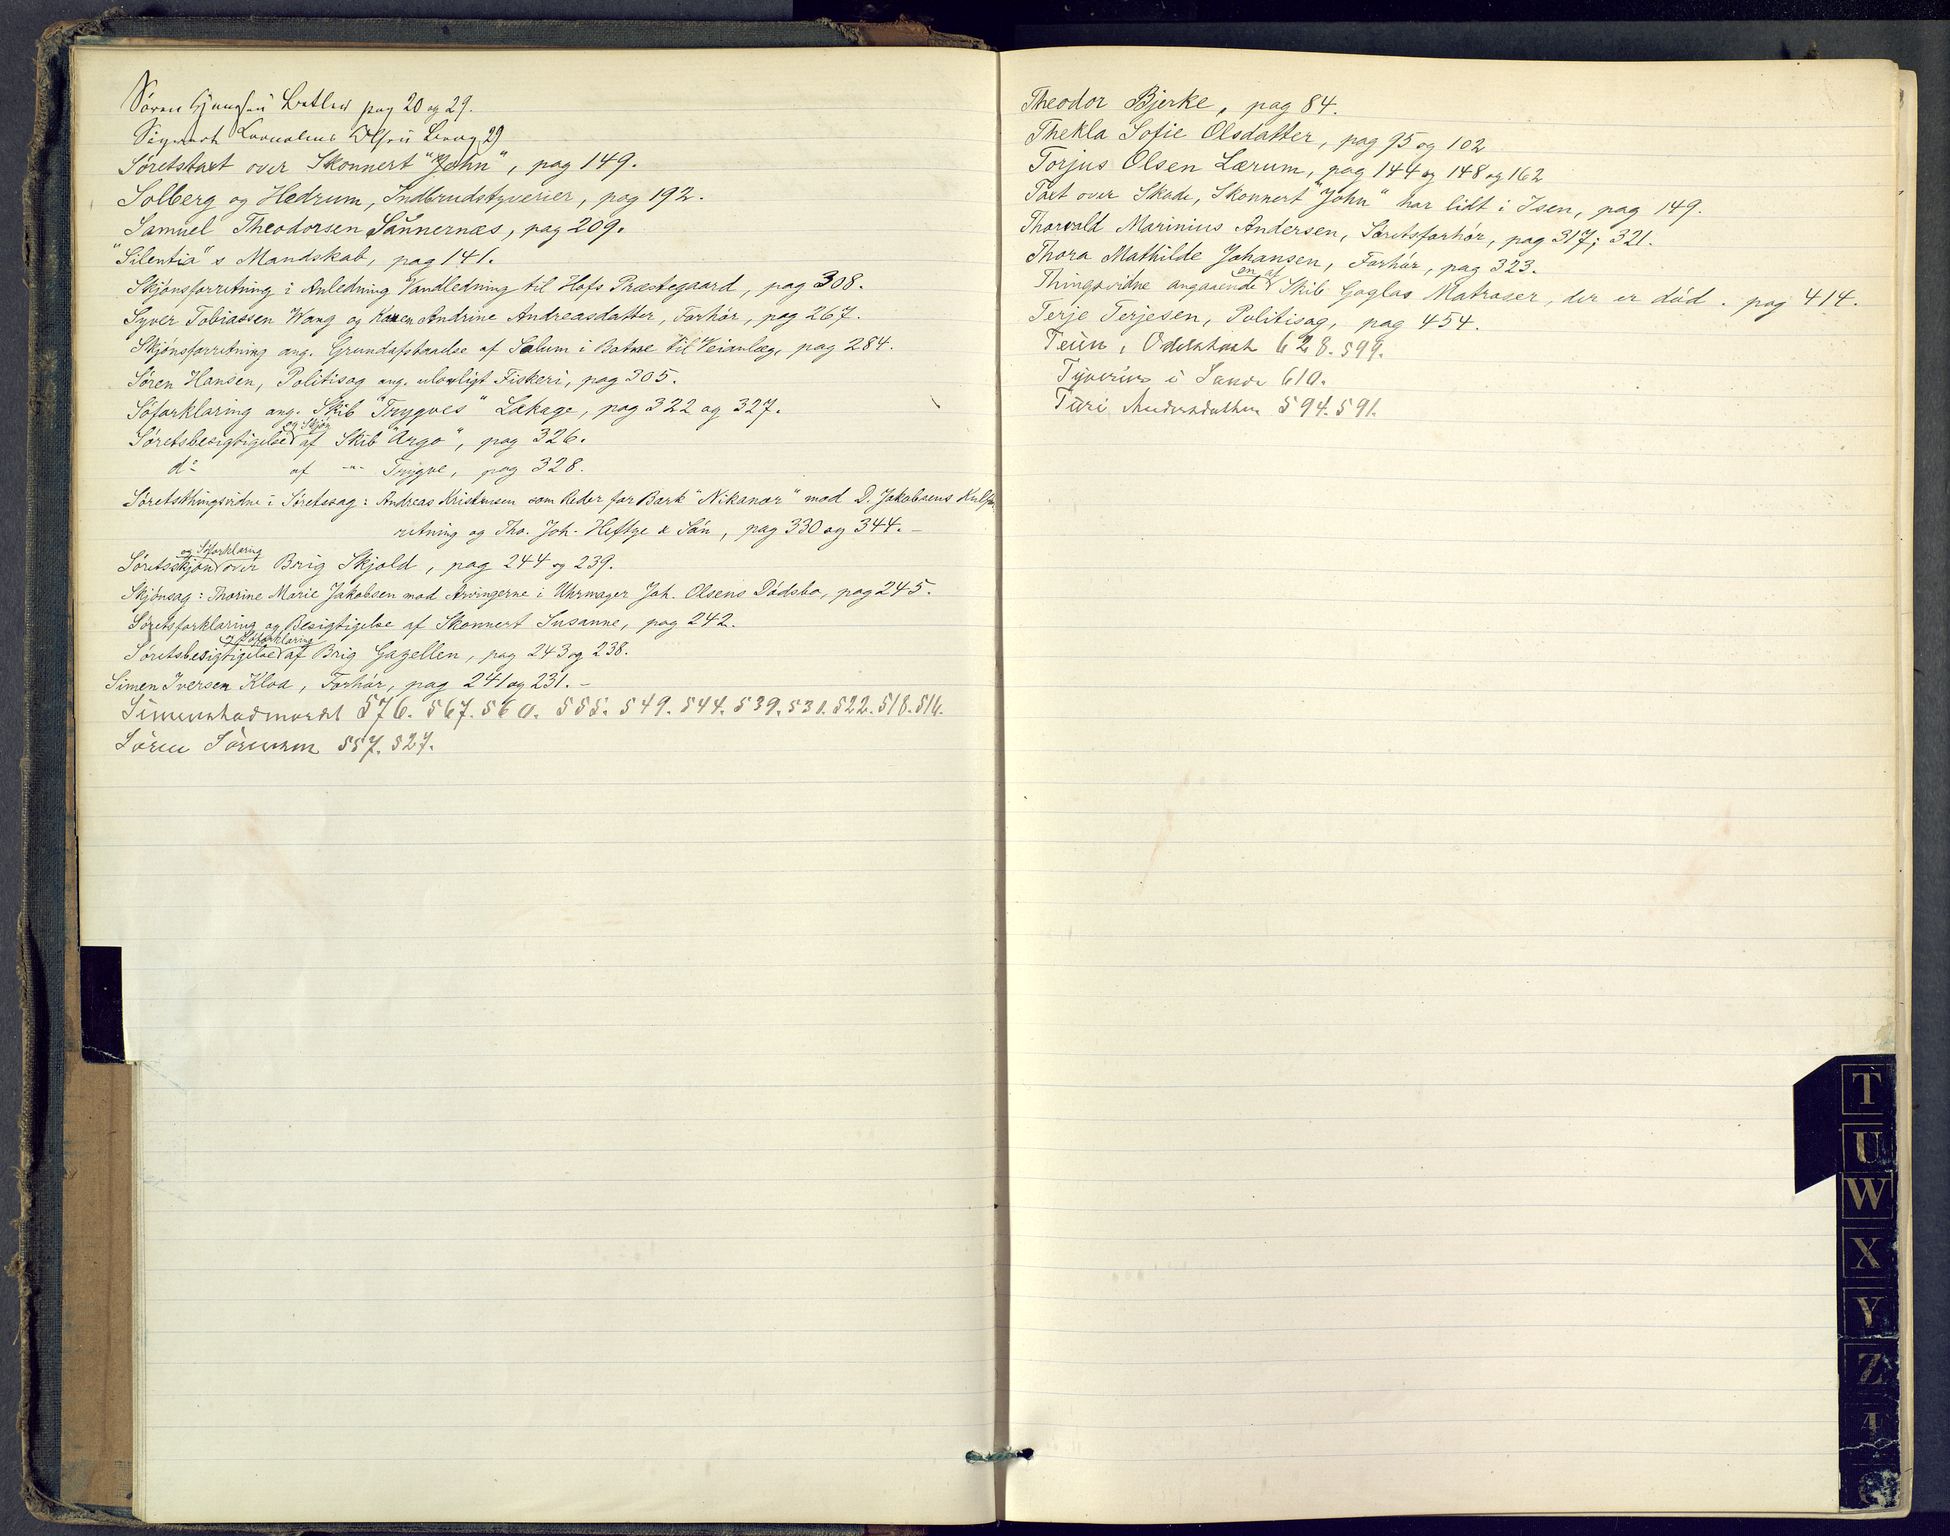 Søren pag 20 og 29.
Olsen 29
Søretstaxt over Skonnert "John", pag 149.
Solberg og Hedrum, Indbrudstyverier, pag 192.
Samuel Theodorsen Sünnernæs, pag 209.
"Silentia"s Mandskab, pag 141.
Skjønsforretning i Anledning Vandledning til Hofs Præstegaard, pag 308.
Syver Tobiassen Wang og Karen Andrine Andreasdatter, Forhør, pag 267.
Skjønsforretning ang. Grundafstaaelse af Solum i Botne til Veianlæg, pag 284.
Søren Hansen, Politisag ang. ulovligt Fiskeri, pag 305.
Søforklaring ang. Skib "Trygves" Lækage, pag 322 og 327.
Søretsbesigtigelse og Skjøn af Skib "Argo", pag 326.
do af -"- Trygve, pag 328.
Søretsthingsvidne i Søretssag: Andreas Kristensen som Reder for Bark "Nikanor" mod D. Jakobsens Kulfor
retning og Tho. Joh. Heftye & Søn, pag 330 og 344. -
Søretsskjøn og Søforklaring over Brig Skjold, pag 244 og 239.
Skjønsag: Thorine Marie Jakobsen mod Arvingerne i Uhrmager Joh. Olsens Dødsbo, pag 245.
Søretsforklaring og Besigtigelse af Skonnert Susanne, pag 242.
Søretsbesigtigelse og Søforklaring af Brig Gazellen, pag 243 og 238.
Simen Iversen Klod, Forhør, pag 241 og 231. -
Simenstadmordet 576. 567. 560. 555. 549. 544. 539. 531. 522. 518. 516.
Søren Sørensen 557. 527.
Theodor Bjerke, pag 84.
Thekla Sofie Olsdatter, pag 95 og 102
Torjus Olsen Lærum, pag 144 og 148 og 162
Taxt over Skade, Skonnert "John" har lidt i Isen, pag 149.
Thorvald Marinius Andersen, Søretsforhør, pag 317; 321.
Thora Mathilde Johansen, Forhør, pag 323.
Thingsvidne angaaende en af Skib Gaglas Matroser, der er død. pag 414.
Terje Terjesen, Politisag, pag 454.
628. 599.
Tyverier i Sande 610.
Turi Andersdatter 594. 591.
T
U
W
X
Y
Z
Æ